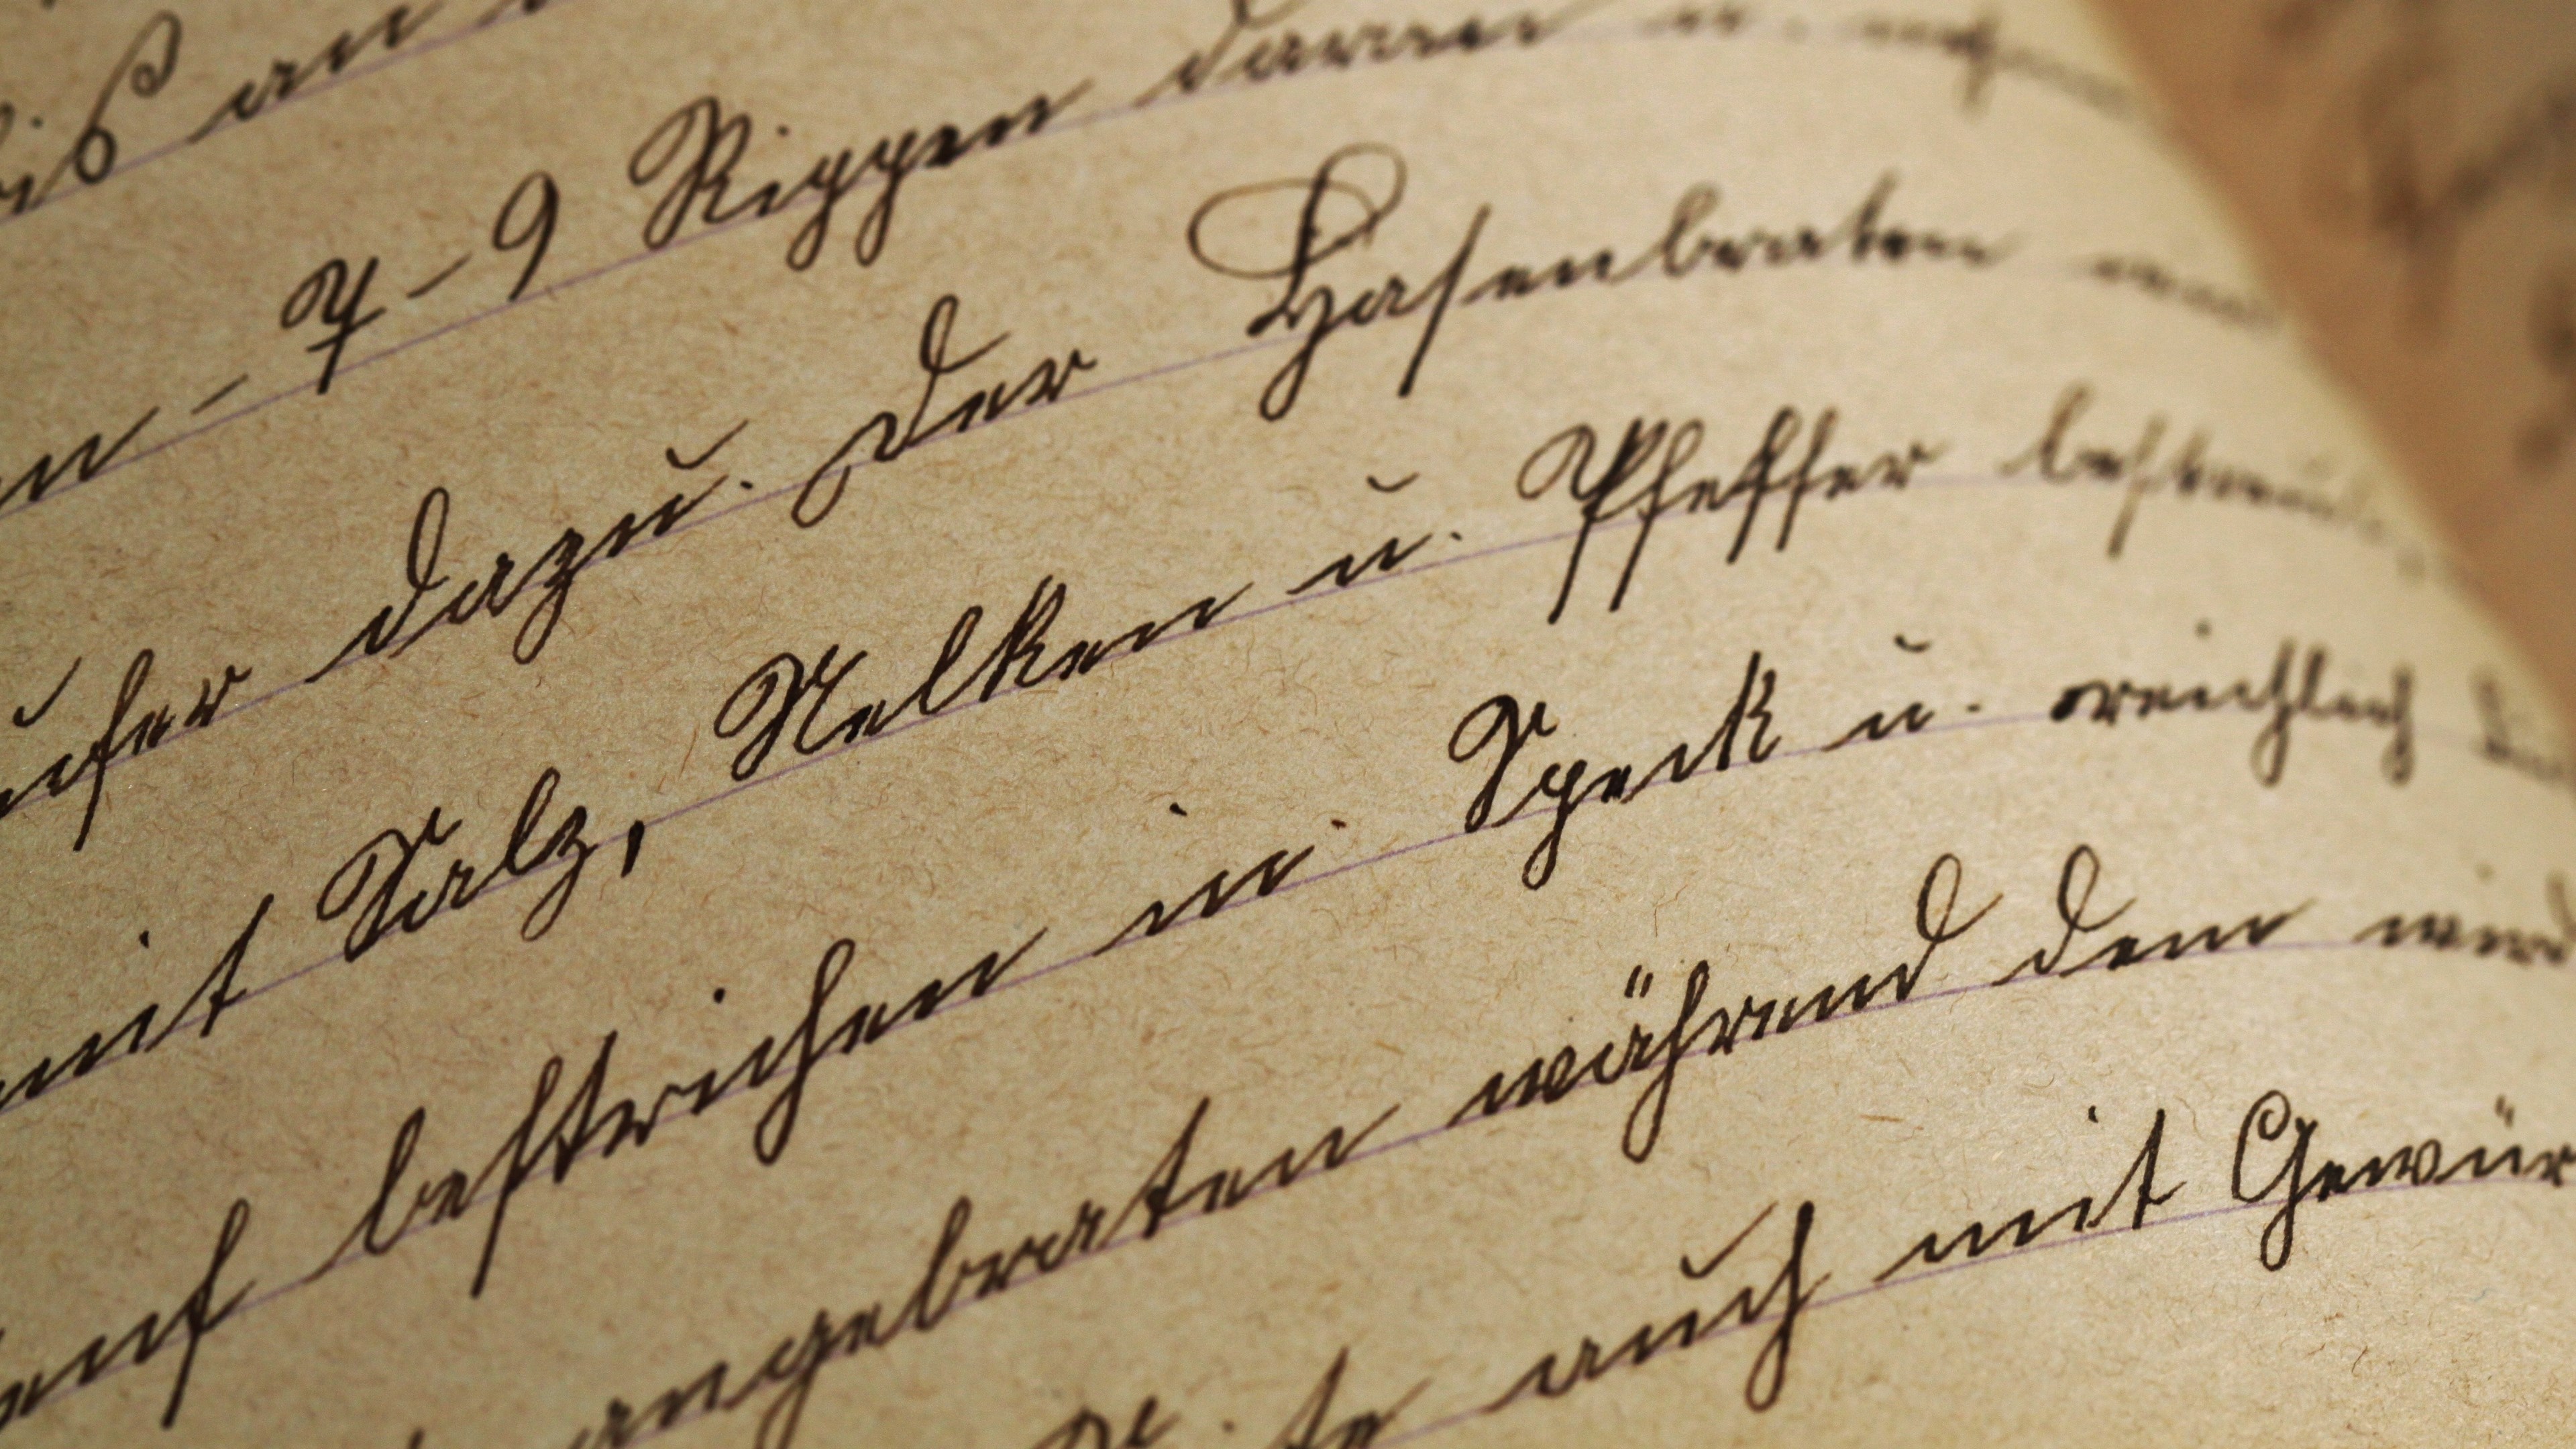 bis an
7–9 Rippen daran u.
dazu. Der Hasenbraten
mit Salz, Nelken u. Pfeffer bestreut
bestrichen in Speck u. reichlich
angebraten während dem wird
auch mit Gewür